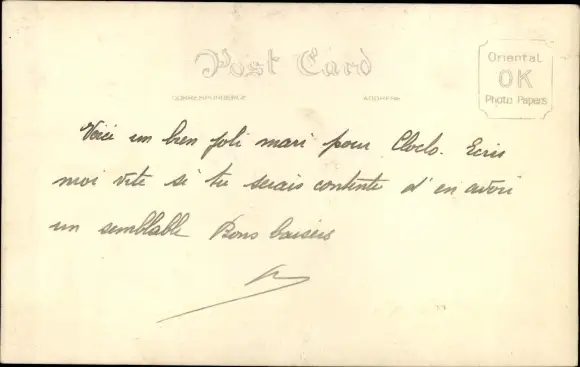 Post Card
Oriental
OK
Photo Papers
CORRESPONDENCE
ADDRESS
Voici un bien joli mari pour Cloclo. Ecris
moi vite si tu serais contente d'en avoir
un semblable Bons baisers